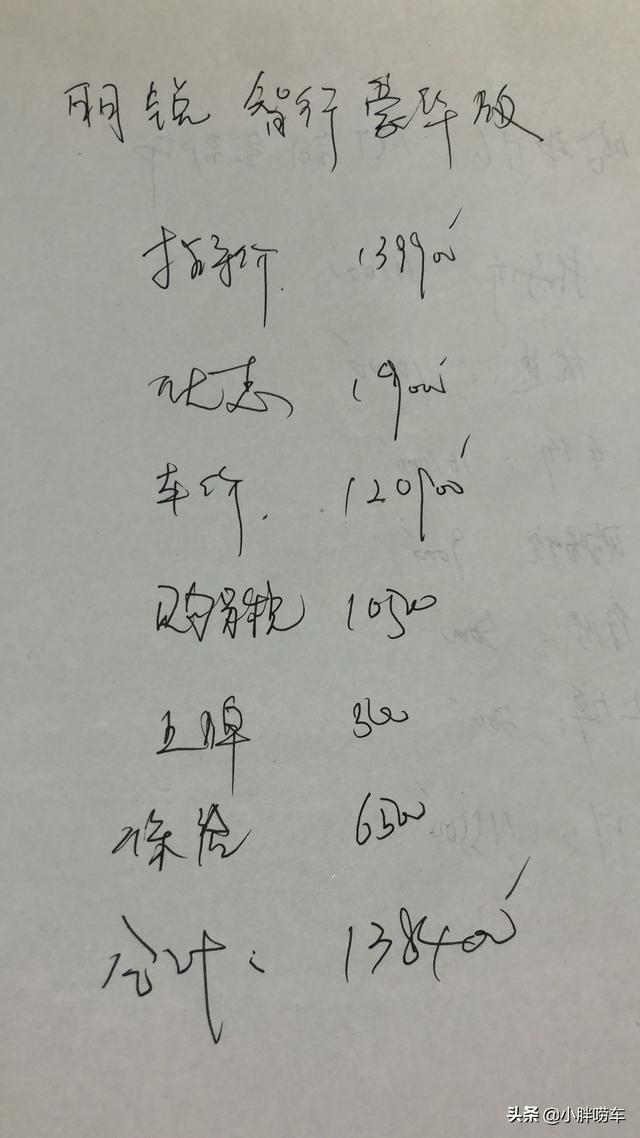 明锐 智行豪华版
指导价. 139900
优惠 19000
车价. 120900
购置税 10500
上牌 500
保险 6500
合计: 138400
头条 @小胖唠车